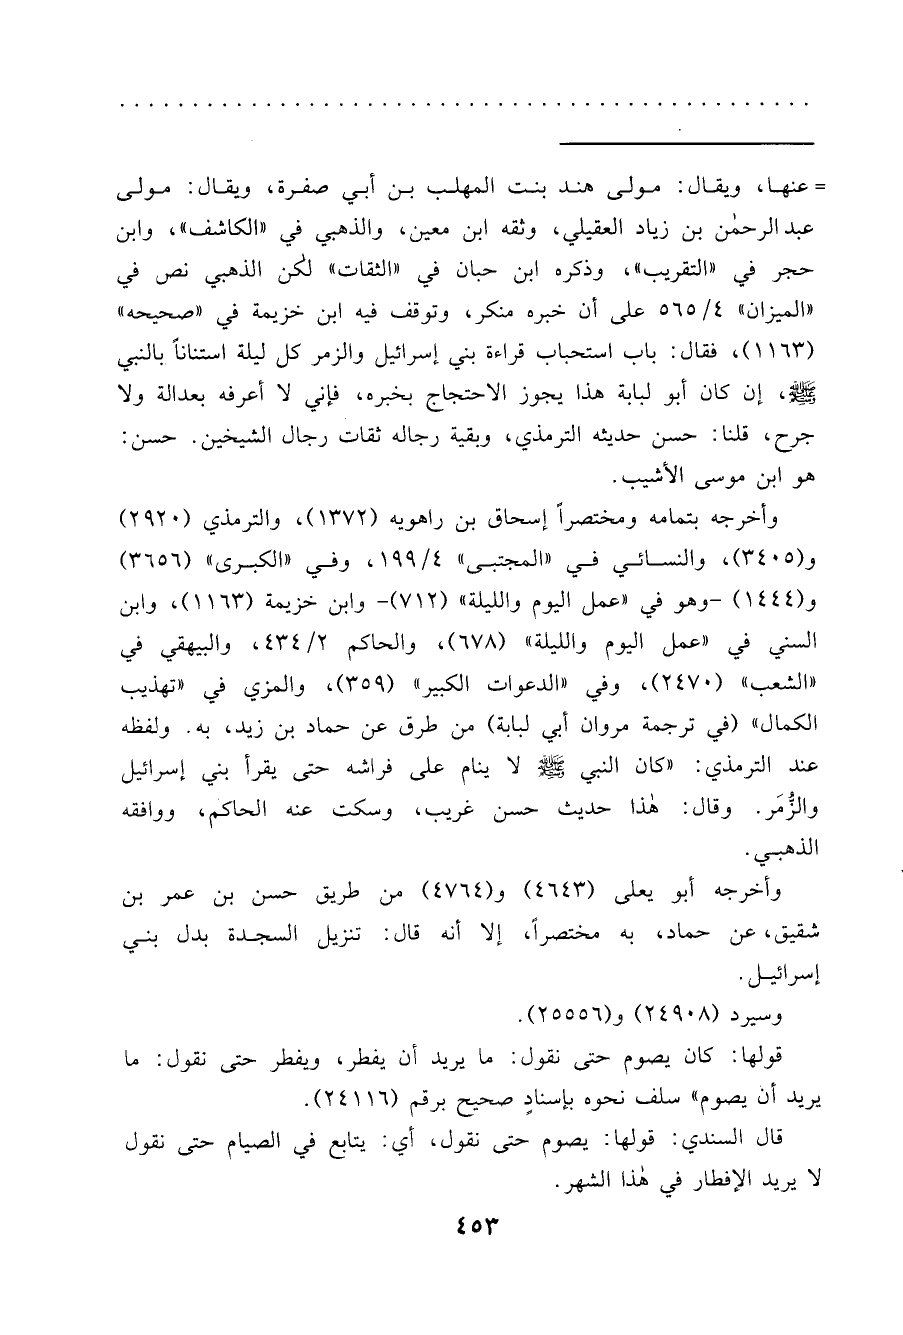 = عنها، ويقال: مولى هند بنت المهلب بن أبي صفرة، ويقال: مولى
عبد الرحمٰن بن زياد العقيلي، وثقه ابن معين، والذهبي في «الكاشف»، وابن
حجر في «التقريب»، وذكره ابن حبان في «الثقات» لٰكن الذهبي نص في
«الميزان» ٥٦٥/٤ على أن خبره منكر، وتوقف فيه ابن خزيمة في «صحيحه»
(١١٦٣)، فقال: باب استحباب قراءة بني إسرائيل والزمر كل ليلة استناناً بالنبي
ﷺ، إن كان أبو لبابة هذا يجوز الاحتجاج بخبره، فإني لا أعرفه بعدالة ولا
جرح، قلنا: حسن حديثه الترمذي، وبقية رجاله ثقات رجال الشيخين. حسن:
هو ابن موسى الأشيب.
وأخرجه بتمامه ومختصراً إسحاق بن راهويه (١٣٧٢)، والترمذي (٢٩٢٠)
و(٣٤٠٥)، والنسائي في «المجتبى» ١٩٩/٤، وفي «الكبرى» (٣٦٥٦)
و(١٤٤٤) -وهو في «عمل اليوم والليلة» (٧١٢)- وابن خزيمة (١١٦٣)، وابن
السني في «عمل اليوم والليلة» (٦٧٨)، والحاكم ٤٣٤/٢، والبيهقي في
«الشعب» (٢٤٧٠)، وفي «الدعوات الكبير» (٣٥٩)، والمزي في «تهذيب
الكمال» (في ترجمة مروان أبي لبابة) من طرق عن حماد بن زيد، به. ولفظه
عند الترمذي: «كان النبي ﷺ لا ينام على فراشه حتى يقرأ بني إسرائيل
والزُّمَر. وقال: هٰذا حديث حسن غريب، وسكت عنه الحاكم، ووافقه
الذهبي.
وأخرجه أبو يعلى (٤٦٤٣) و(٤٧٦٤) من طريق حسن بن عمر بن
شقيق، عن حماد، به مختصراً، إلا أنه قال: تنزيل السجدة بدل بني
إسرائيل.
وسيرد (٢٤٩٠٨) و(٢٥٥٥٦).
قولها: كان يصوم حتى نقول: ما يريد أن يفطر، ويفطر حتى نقول: ما
يريد أن يصوم» سلف نحوه بإسنادٍ صحيح برقم (٢٤١١٦).
قال السندي: قولها: يصوم حتى نقول، أي: يتابع في الصيام حتى نقول
لا يريد الإفطار في هٰذا الشهر.
٤٥٣